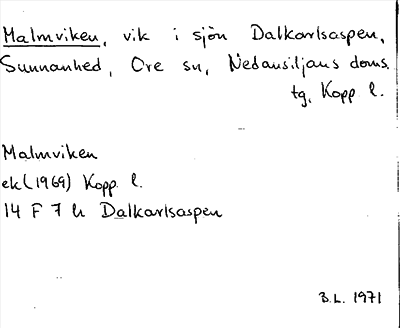 Malmviken, vik i sjön Dalkarlsaspen,
Sunnanhed, Ore sn, Nedansiljans doms.
tg, Kopp l.
Malmviken
ek (1969) Kopp. l.
14 F 7 h Dalkarlsaspen
B.L. 1971